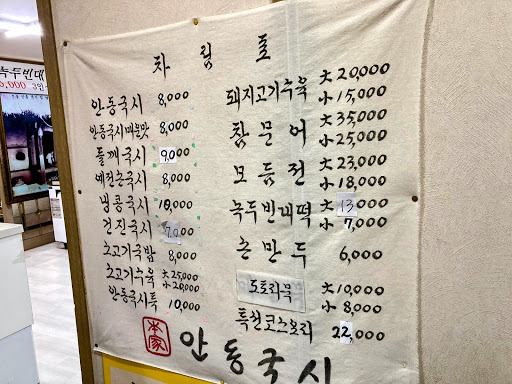 차림표
안동국시 8,000
안동국시매운맛 8,000
들깨국시 9,000
예전손국시 8,000
냉콩국시 10,000
건진국시 7,000
소고기국밥 8,000
소고기수육 大 25,000
小 20,000
안동국시특 10,000
돼지고기수육 大 20,000
小 15,000
참문어 大 35,000
小 25,000
모듬전 大 23,000
小 18,000
녹두빈대떡 大 13,000
小 7,000
손만두 6,000
도토리묵 大 10,000
小 8,000
22,000
本家
안동국시
녹두빈대